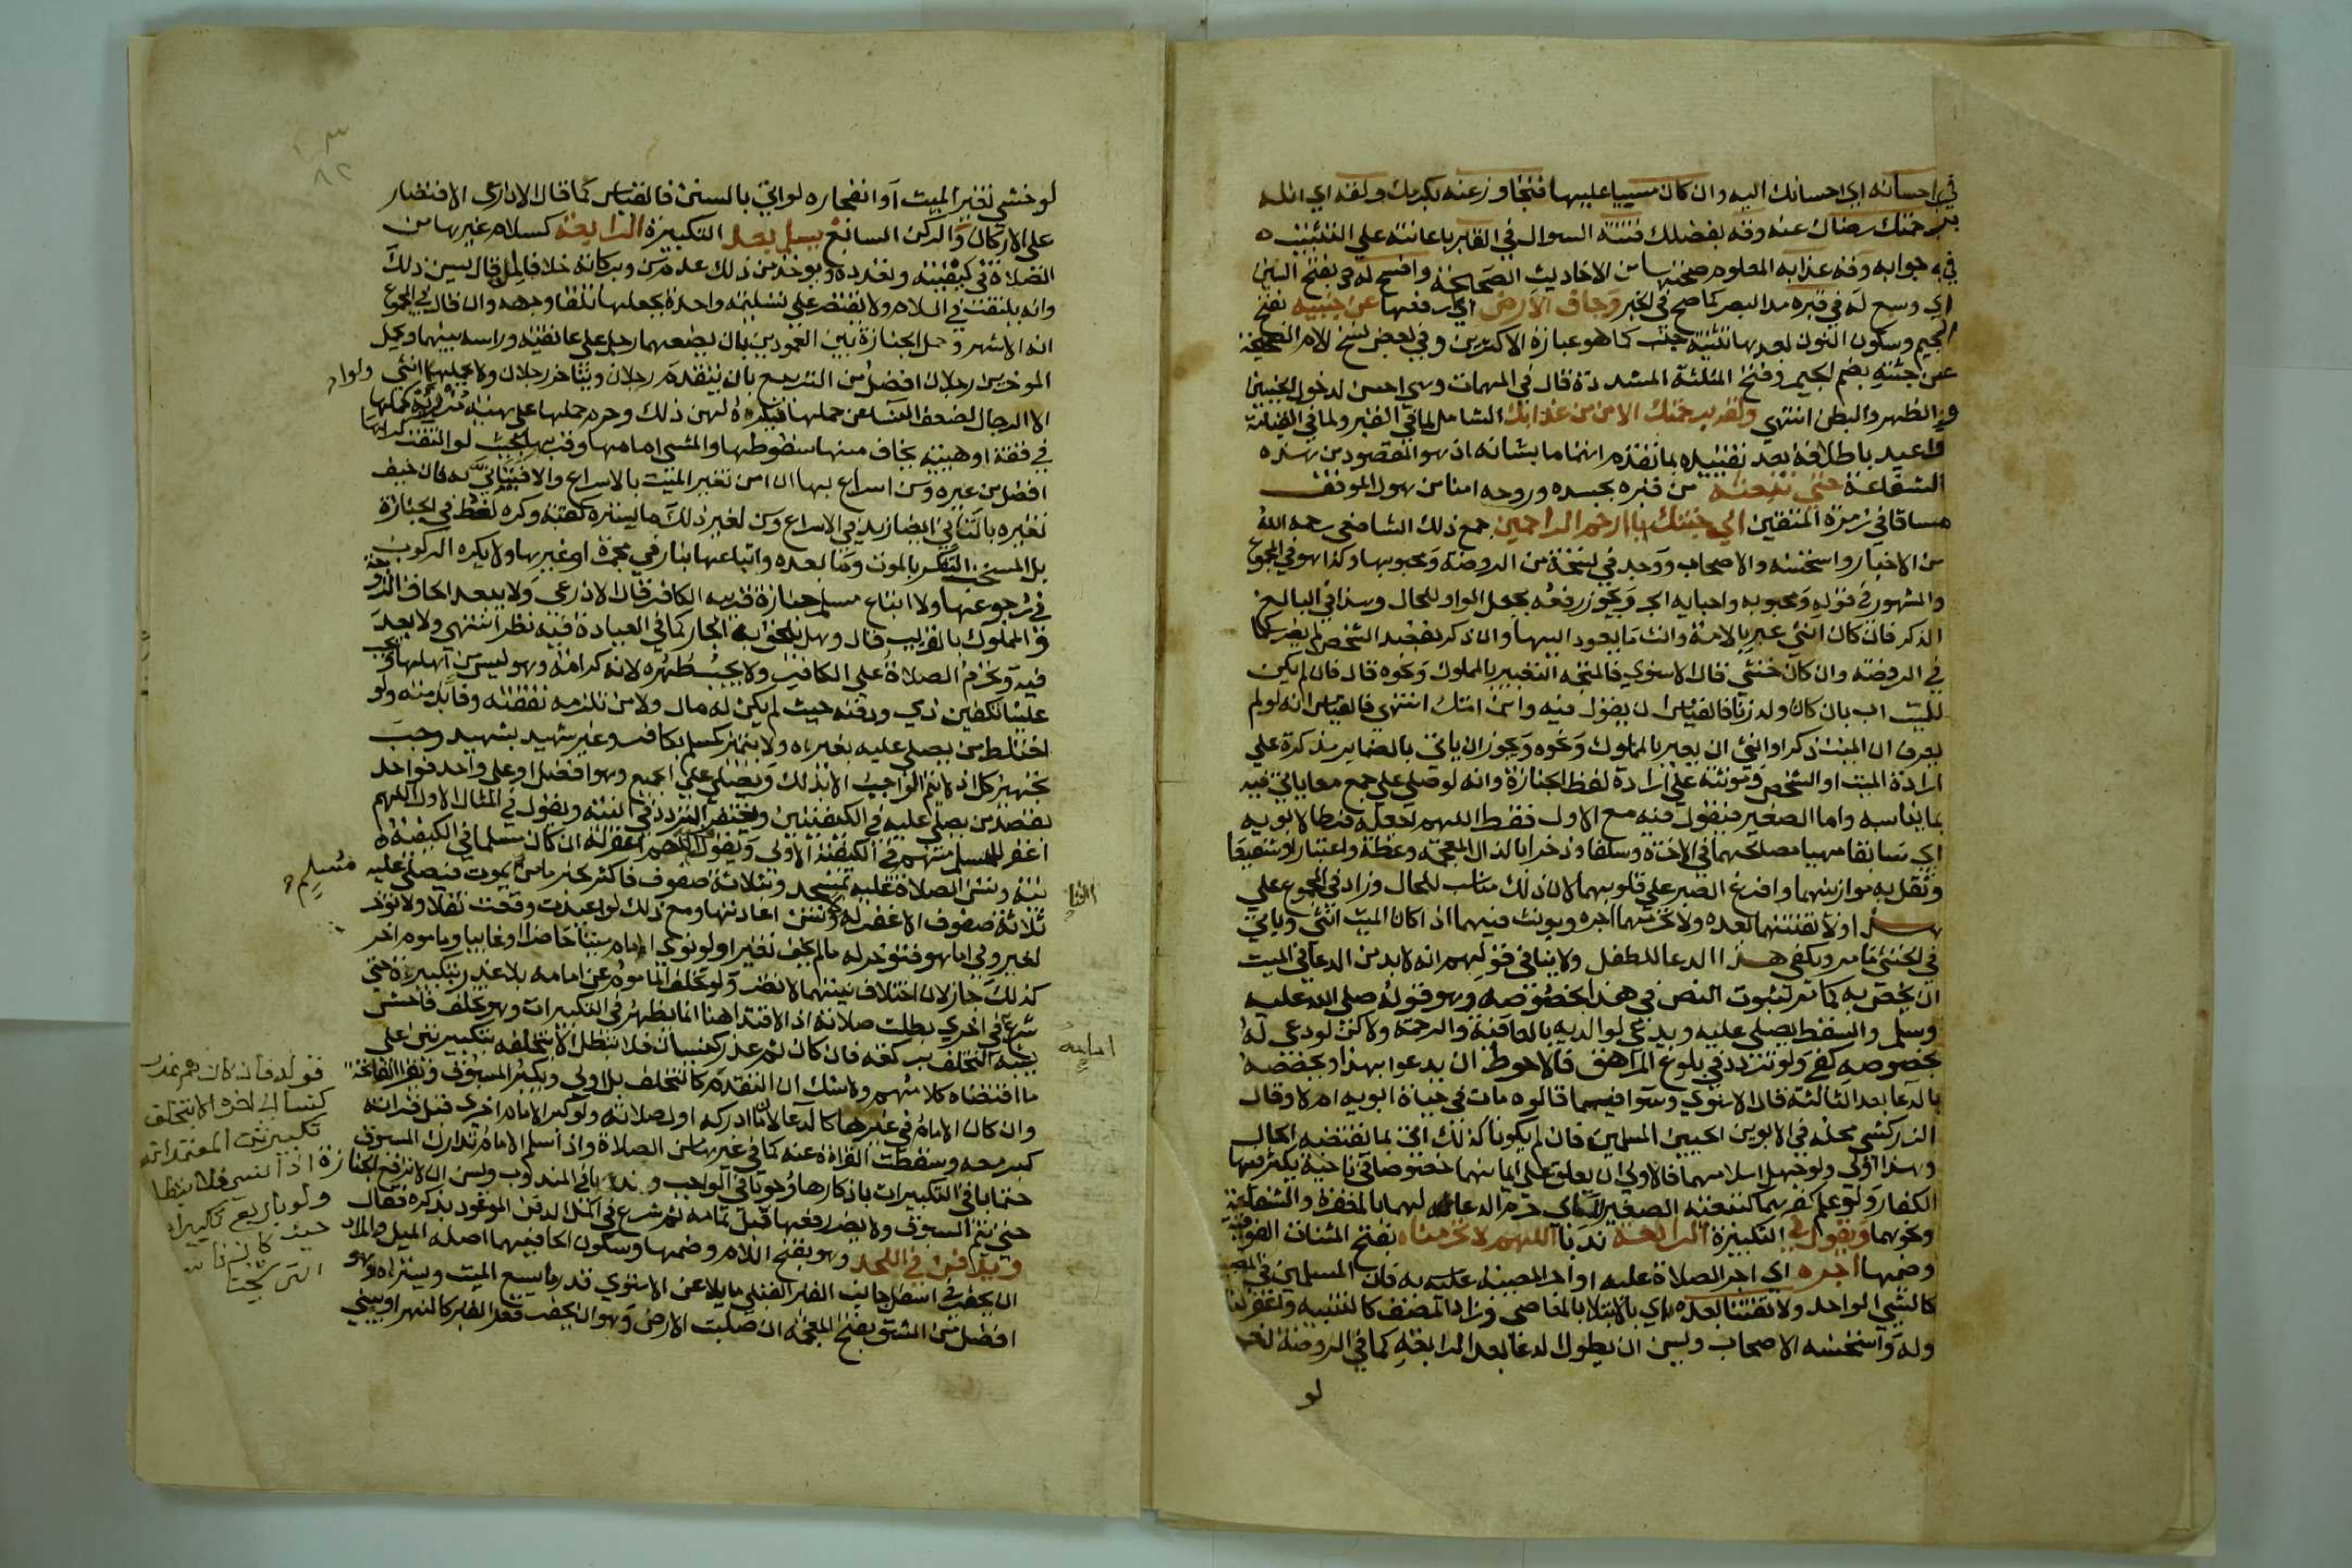 في احسانه اي احسانك اليه وان كان مسييا عليها فتجاوز عنه بكرمك ولقه اي انله
برحمتك رضاك عنه وقه بفضلك فتنة السوال في القبر باعانته على التثبيت
في جوابه وقه عذابه المعلوم صحتها من الاحاديث الصحيحة وافسح له هو بفتح السين
اي وسع له في قبره مد البصر كما صح في الخبر وجاف الارض اي ارفعها عن جنبيه بفتح
الجيم وسكون النون بعدها تثنية جنب كما هو عبارة الاكثرين وفي بعض نسخ الام الصحيحة
عن جثته بضم الجيم وفتح المثلثة المشددة قال في المهمات وهي احسن لدخول الجنبين
والظهر والبطن انتهي ولقه برحمتك الامن من عذابك الشامل لما في القبر ولما في القيامة
واعيد باطلاقه بعد تقييده بما تقدم اهتماما بشانه اذ هو المقصود من هذه
الشفاعة حتى تبعثه من قبره بجسده وروحه امنا من هول الموقف
مساقا في زمرة المتقين الي جنتك ياارحم الراحمين جمع ذلك الشافعي رحمه الله
من الاخبار واستحسنه الاصحاب ووجد في نسخة من الروضة ومحبوبها وكذا هو في المجموع
والمشهور في قوله ومحبوبه واحبايه الجر ويجوز رفعه بجعل الواو للحال وهذا في البالغ
الذكر فان كان انثي عبر بالامة وانث ما يعود اليها وان ذكر بقصد الشخص لم يضر كما
في الروضة وان كان خنثي قال الاسنوي فالمتجه التعبير بالمملوك ونحوه قال فان لم يكن
للميت اب بان كان ولد زنا فالقياس ان يقول فيه وابن امتك انتهي فالقياس انه لو لم
يعرف ان الميت ذكر او انثي ان يعبر بالمملوك ونحوه ويجوز ان ياتي بالضماير مذكرة علي
ارادة الميت او الشخص ومونثة علي ارادة لفظ الجنازة وانه لو صلي علي جمع معا ياتي فيه
بما يناسبه واما الصغير فيقول فيه مع الاول فقط اللهم اجعله فرطا لابويه
اي سابقا مهيا مصالحهما في الاخرة وسلفا وذخرا بالذال المعجمة وعظة واعتبارا وشفيعا
وثقل به موازينهما وافرغ الصبر علي قلوبهما لان ذلك مناسب للحال وزاد في المجموع علي
هذا ولا تفتنهما بعده ولا تحرمهما اجره ويونث فيهما اذا كان الميت انثي وياتي
في الخنثي مامر ويكفي هذا الدعا للطفل ولا ينافي قولهم انه لابد من الدعا في الميت
ان يخص به كما مر لثبوت النص في هذا بخصوصه وهو قوله صلي الله عليه
وسلم والسقط يصلي عليه ويدعي لوالديه بالعافية والرحمة ولاكن لو دعي له
بخصوصه كفي ولو تردد في بلوغ المراهق فالاحوط ان يدعوا بهذا ويخصه
بالدعا بعد الثالثة قال الاسنوي وسوا فيما قالوه مات في حياة ابويه ام لا وقال
الزركشي محله في الابوين الحيين المسلمين فان لم يكونا كذلك اتي بما يقتضيه الحال
وهذا اولي ولو جهل اسلامهما فالاولي ان يعلق علي ايمانهما خصوصا في ناحية يكثر فيها
الكفار ولو علم كفرهما كتبعية الصغير للسابي حرم الدعا لهما بالمغفرة والشفاعة
ونحوهما ويقول في التكبيرة الرابعة ندبا اللهم لا تحرمناه بفتح المثناة الفوقية
وضمها اجره اي اجر الصلاة عليه او اجر المصيبة به فان المسلمين في المصيبة
كالشي الواحد ولا تفتنا بعده اي بالابتلا بالمعاصي وزاد المصنف كالتنبيه واغفر لنا
وله واستحسنه الاصحاب ويسن ان يطول الدعا بعد الرابعة كما في الروضة نعم
لو
لو خشي تغير الميت او انفجاره لو اتي بالسنن فالقياس كما قال الاذرعي الاقتصار
علي الاركان والركن السابع يسلم بعد التكبيرة الرابعة كسلام غيرها من
الصلاة في كيفيته وتعدده ويوخذ من ذلك عدم سن وبركاته خلافا لمن قال يسن ذلك
وانه يلتفت في السلام ولا يقتصر علي تسليمة واحدة يجعلها تلقا وجهه وان قال في المجموع
انه الاشهر وحمل الجنازة بين العمودين بان يضعهما رجل علي عاتقيه وراسه بينهما ويحمل
الموخرين رجلان افضل من التربيع بان يتقدم رجلان ويتاخر رجلان ولا يحملها ولو انثي
الا الرجال لضعف النسا عن حملها فيكره لهن ذلك وحرم حملها علي هيئة مزرية كحملها
في قفة او هيئة يخاف منها سقوطها والمشي امامها وقربها بحيث لو التفت لراها
افضل من غيره وسن اسراع بها ان امن تغير الميت بالاسراع والا فيتاني به فان خيف
تغيره بالتاني ايضا زيد في الاسراع وسن لغير ذكر ما يستره كقبة وكره لغط في الجنازة
بل المستحب التفكر بالموت وما بعده واتباعها بنار في مجمرة او غيرها ولا يكره الركوب
في رجوع عنها ولا اتباع مسلم جنازة قريبه الكافر قال الاذرعي ولا يبعد الحاق الزوجة
والمملوك بالقريب قال وهل يلحق به الجار كما في العيادة فيه نظر انتهي ولا بعد
فيه وتحرم الصلاة علي الكافر ولا يجب طهره لانه كرامة وهو ليس من اهلها ويجب
علينا تكفين ذمي ودفنه حيث لم يكن له مال ولا من تلزمه نفقته وفا بذمته ولو
اختلط من يصلي عليه بغيره ولا يتميز كمسلم بكافر وغير شهيد بشهيد وجب
تجهيز كل اذ لا يتم الواجب الا بذلك ويصلي علي الجميع وهو افضل او علي واحد فواحد
بقصد من يصلي عليه في الكيفيتين ويغتفر التردد في النية ويقول في المثال الاول اللهم
اغفر للمسلم منهم في الكيفية الاولي ويقول اللهم اغفر له ان كان مسلما في الكيفية
الثانية وتسن الصلاة عليه بمسجد وبثلاثة صفوف فاكثر لخبر ما من مسلم يموت فيصلي عليه
ثلاثة صفوف الا غفر له ولا تسن اعادتها ومع ذلك لو اعيدت وقعت نفلا ولا توخر
لغير ولي اما هو فتوخر له مالم يخف تغير ولو نوي امام ميتا حاضرا او غايبا وماموم اخر
كذلك جاز لان اختلاف نيتهما لا يضر ولو تخلف الماموم عن امامه بلا عذر بتكبيرة حتي
شرع امامه في اخري بطلت صلاته اذ الاقتدا هنا انما يظهر في التكبيرات وهو تخلف فاحش
يشبه التخلف بركعة فان كان ثم عذر كنسيان فلا تبطل الا بتخلفه بتكبيرتين علي
ما اقتضاه كلامهم ولا شك ان التقدم كالتخلف بل اولي ويكبر المسبوق ويقرا الفاتحة
وان كان الامام في غيرها كالدعا لان ما ادركه اول صلاته ولو كبر الامام اخري قبل قراته
كبر معه وسقطت القراة عنه كما في غيرها من الصلاة واذا سلم الامام تدارك المسبوق
حتما باقي التكبيرات باذكارها وجوبا في الواجب وندبا في المندوب ويسن ان لا ترفع الجنازة
حتي يتم المسبوق ولا يضر رفعها قبل تمامه ثم شرع في الدفن الموعود بذكره فقال
ويدفن في اللحد وهو بفتح اللام وضمها وسكون الحا فيهما اصله الميل والمراد
ان يحفر في اسفل جانب القبر القبلي مايلا عن الاستوي قدر ما يسع الميت ويستره وهو
افضل من الشق بفتح المعجمة ان صلبت الارض وهو ان يحفر قعر القبر كالنهر او يبني
قوله فان كان ثم عذر
كنسيان الا بتخلف
تكبيرتين المعتمد انه
اذا نسي فلا تبطل
ولو باربع تكبيرات